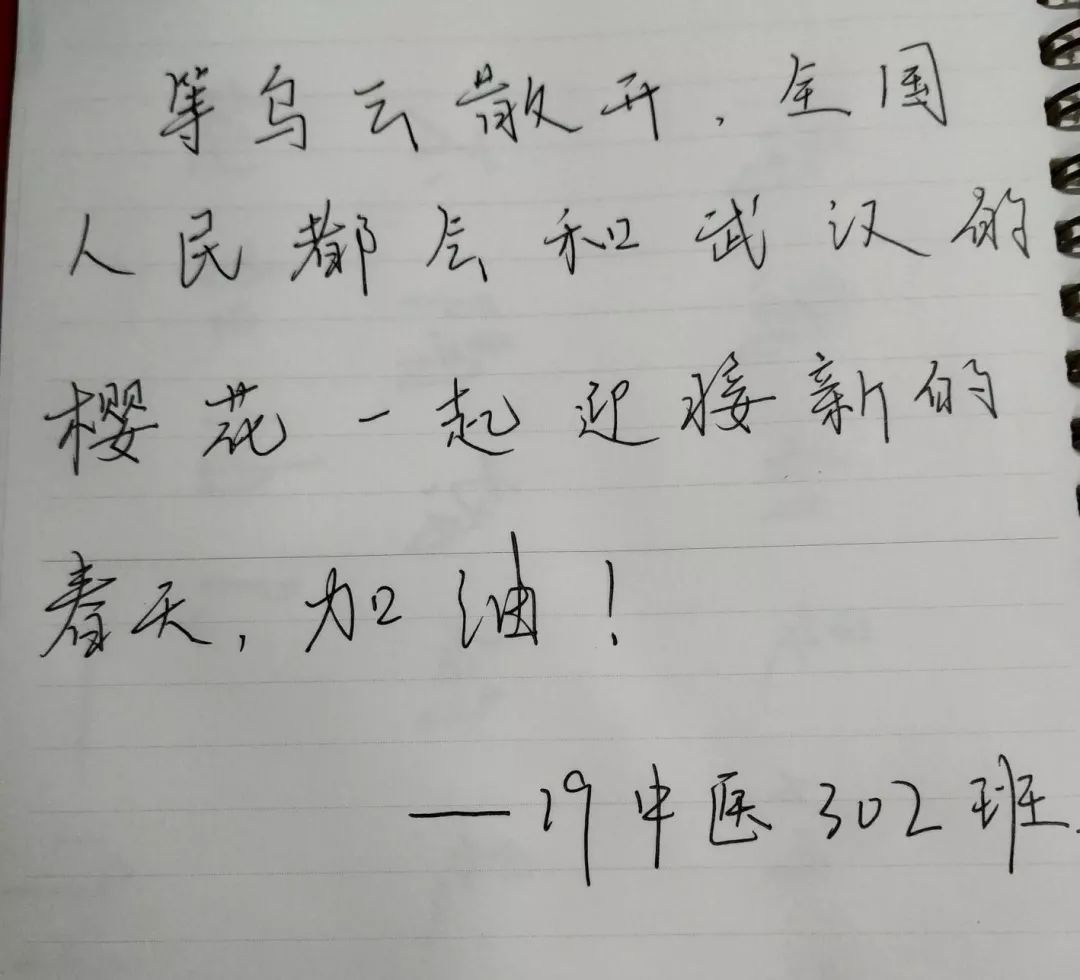 等乌云散开，全国
人民都会和武汉的
樱花一起迎接新的
春天，加油！
——19中医302班